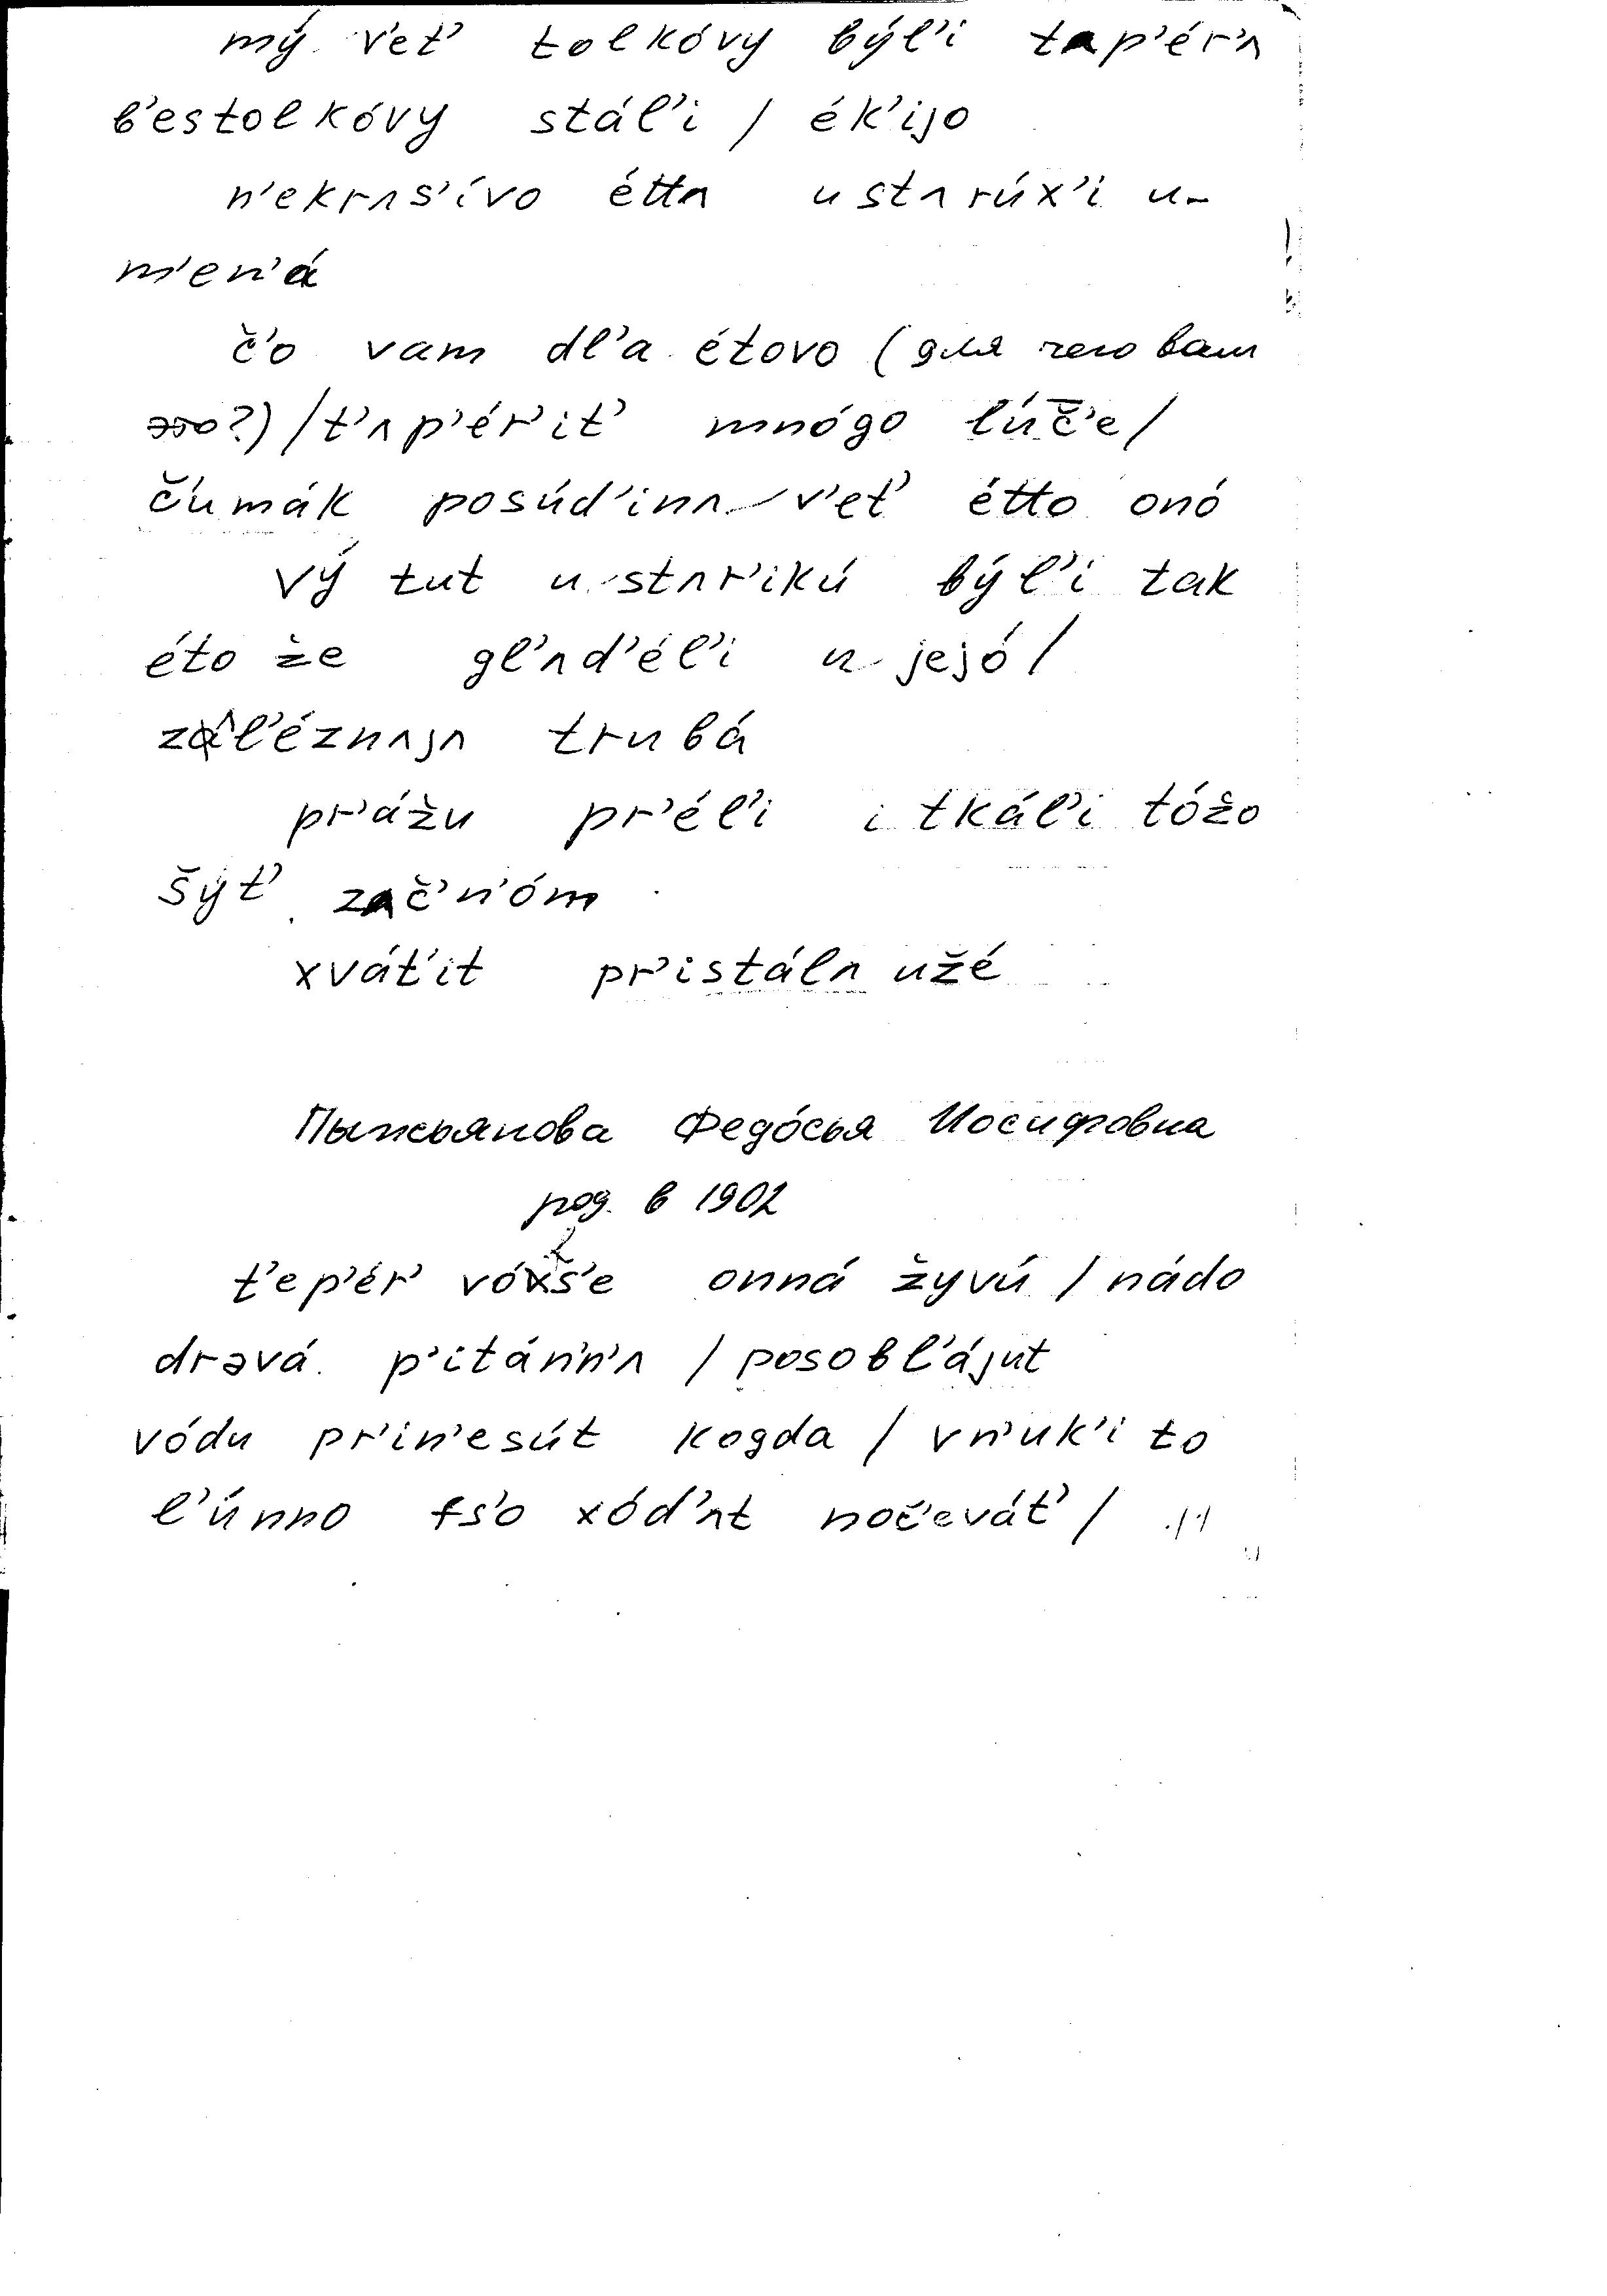 mý v'et' tolkóvy býl'i tap'ér'ʌ
b'estolkóvy stál'i / ék'ijo
n'ekrʌs'ívo éttʌ u stʌrúx'i u-
m'en'á
č'o vam dl'a étovo (для чего вам
это?) / t'ʌp'ér'it' mnógo lúč̅'e /
č'umák posúd'inʌ v'et' étto onó
vý tut u stʌr'ikú býl'i tak
éto že gl'ʌd'él'i u jejó /
zʌl'éznʌjʌ trubá
pr'ážu pr'él'i i tkál'i tóžo
šyt' zač'n'óm
xvát'it pr'istálʌ užé
Пыжьянова Федо́сья Иосифовна
род. в 1902
t'ep'ér' vóš'e onná žyvú / nádo
dravá p'itán'n'ʌ / posobl'ájut
vódu pr'in'esút kogda / vn'uk'i to
l'únno fs'o xód'ʌt noč'evát' /